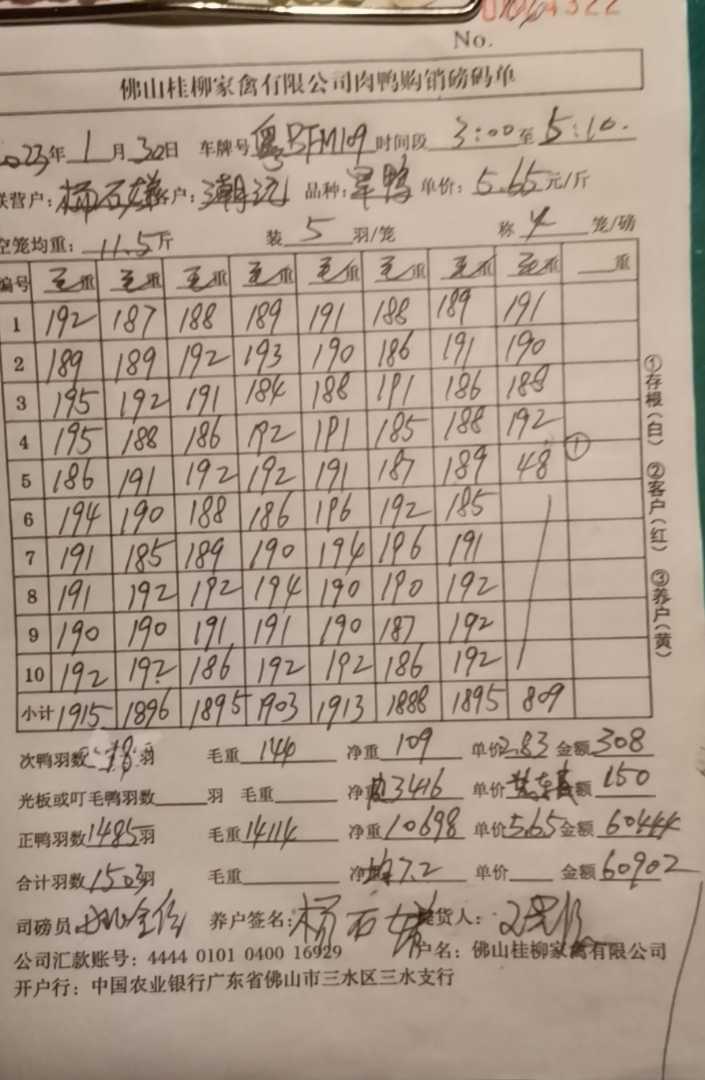 No.
佛山桂柳家禽有限公司肉鸭购销磅码单
2023年 1 月 30日 车牌号 粤BFM109 时间段 3:00 至 5:10.
联营户: 杨石娣 客户: 潮记 品种: 旱鸭 单价: 5.65元/斤
空笼均重: 11.5斤 装 5 羽/笼 称 4 笼/磅
编号 毛重 毛重 毛重 毛重 毛重 毛重 毛重 毛重 重
1 192 187 188 189 191 188 189 191
2 189 189 192 193 190 186 191 190
3 195 192 191 184 188 191 186 188
4 195 188 186 192 191 185 188 192
5 186 191 192 192 191 187 189 48 ①
6 194 190 188 186 196 192 185
7 191 185 189 190 194 196 191
8 191 192 192 194 190 190 192
9 190 190 191 191 190 187 192
10 192 192 186 192 192 186 192
小计 1915 1896 1895 1903 1913 1888 1895 809
次鸭羽数 18 羽 毛重 144 净重 109 单价2.83 金额 308
光板或叮毛鸭羽数 羽 毛重 净重 3416 单价 金额 150
正鸭羽数1485羽 毛重14114 净重10698 单价5.65 金额 60444
合计羽数1503羽 毛重 净 均7.2 单价 金额60902
司磅员 养户签名: 杨石娣 提货人:
公司汇款账号: 4444 0101 0400 16929 户名: 佛山桂柳家禽有限公司
开户行: 中国农业银行广东省佛山市三水区三水支行
①存根(白) ②客户(红) ③养户(黄)